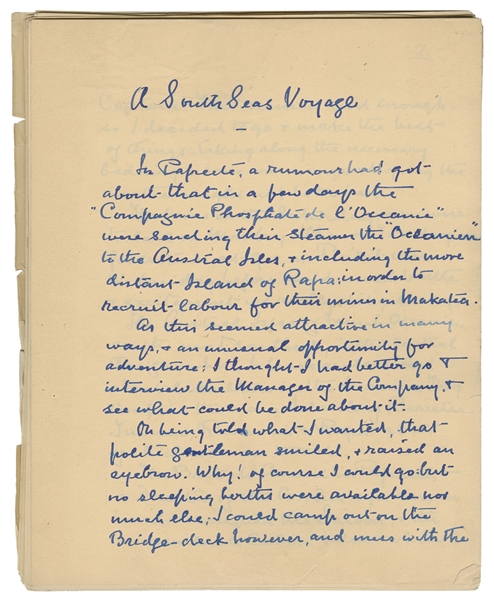 A South Seas Voyage
–
In Papeete, a rumour had got
about that in a few days the
"Compagnie Phosphate de l'Oceanie"
were sending their steamer the "Oceanien"
to the Austral Isles, & including the more
distant Island of Rapa; in order to
recruit labour for their mines in Makatea.
As this seemed attractive in many
ways, & an unusual opportunity for
adventure; I thought I had better go &
interview the Manager of the Company, &
see what could be done about it.
On being told what I wanted, that
polite gentleman smiled, & raised an
eyebrow. Why! of course I could go: but
no sleeping berths were available nor
much else; I could camp out on the
Bridge-deck however, and mess with the